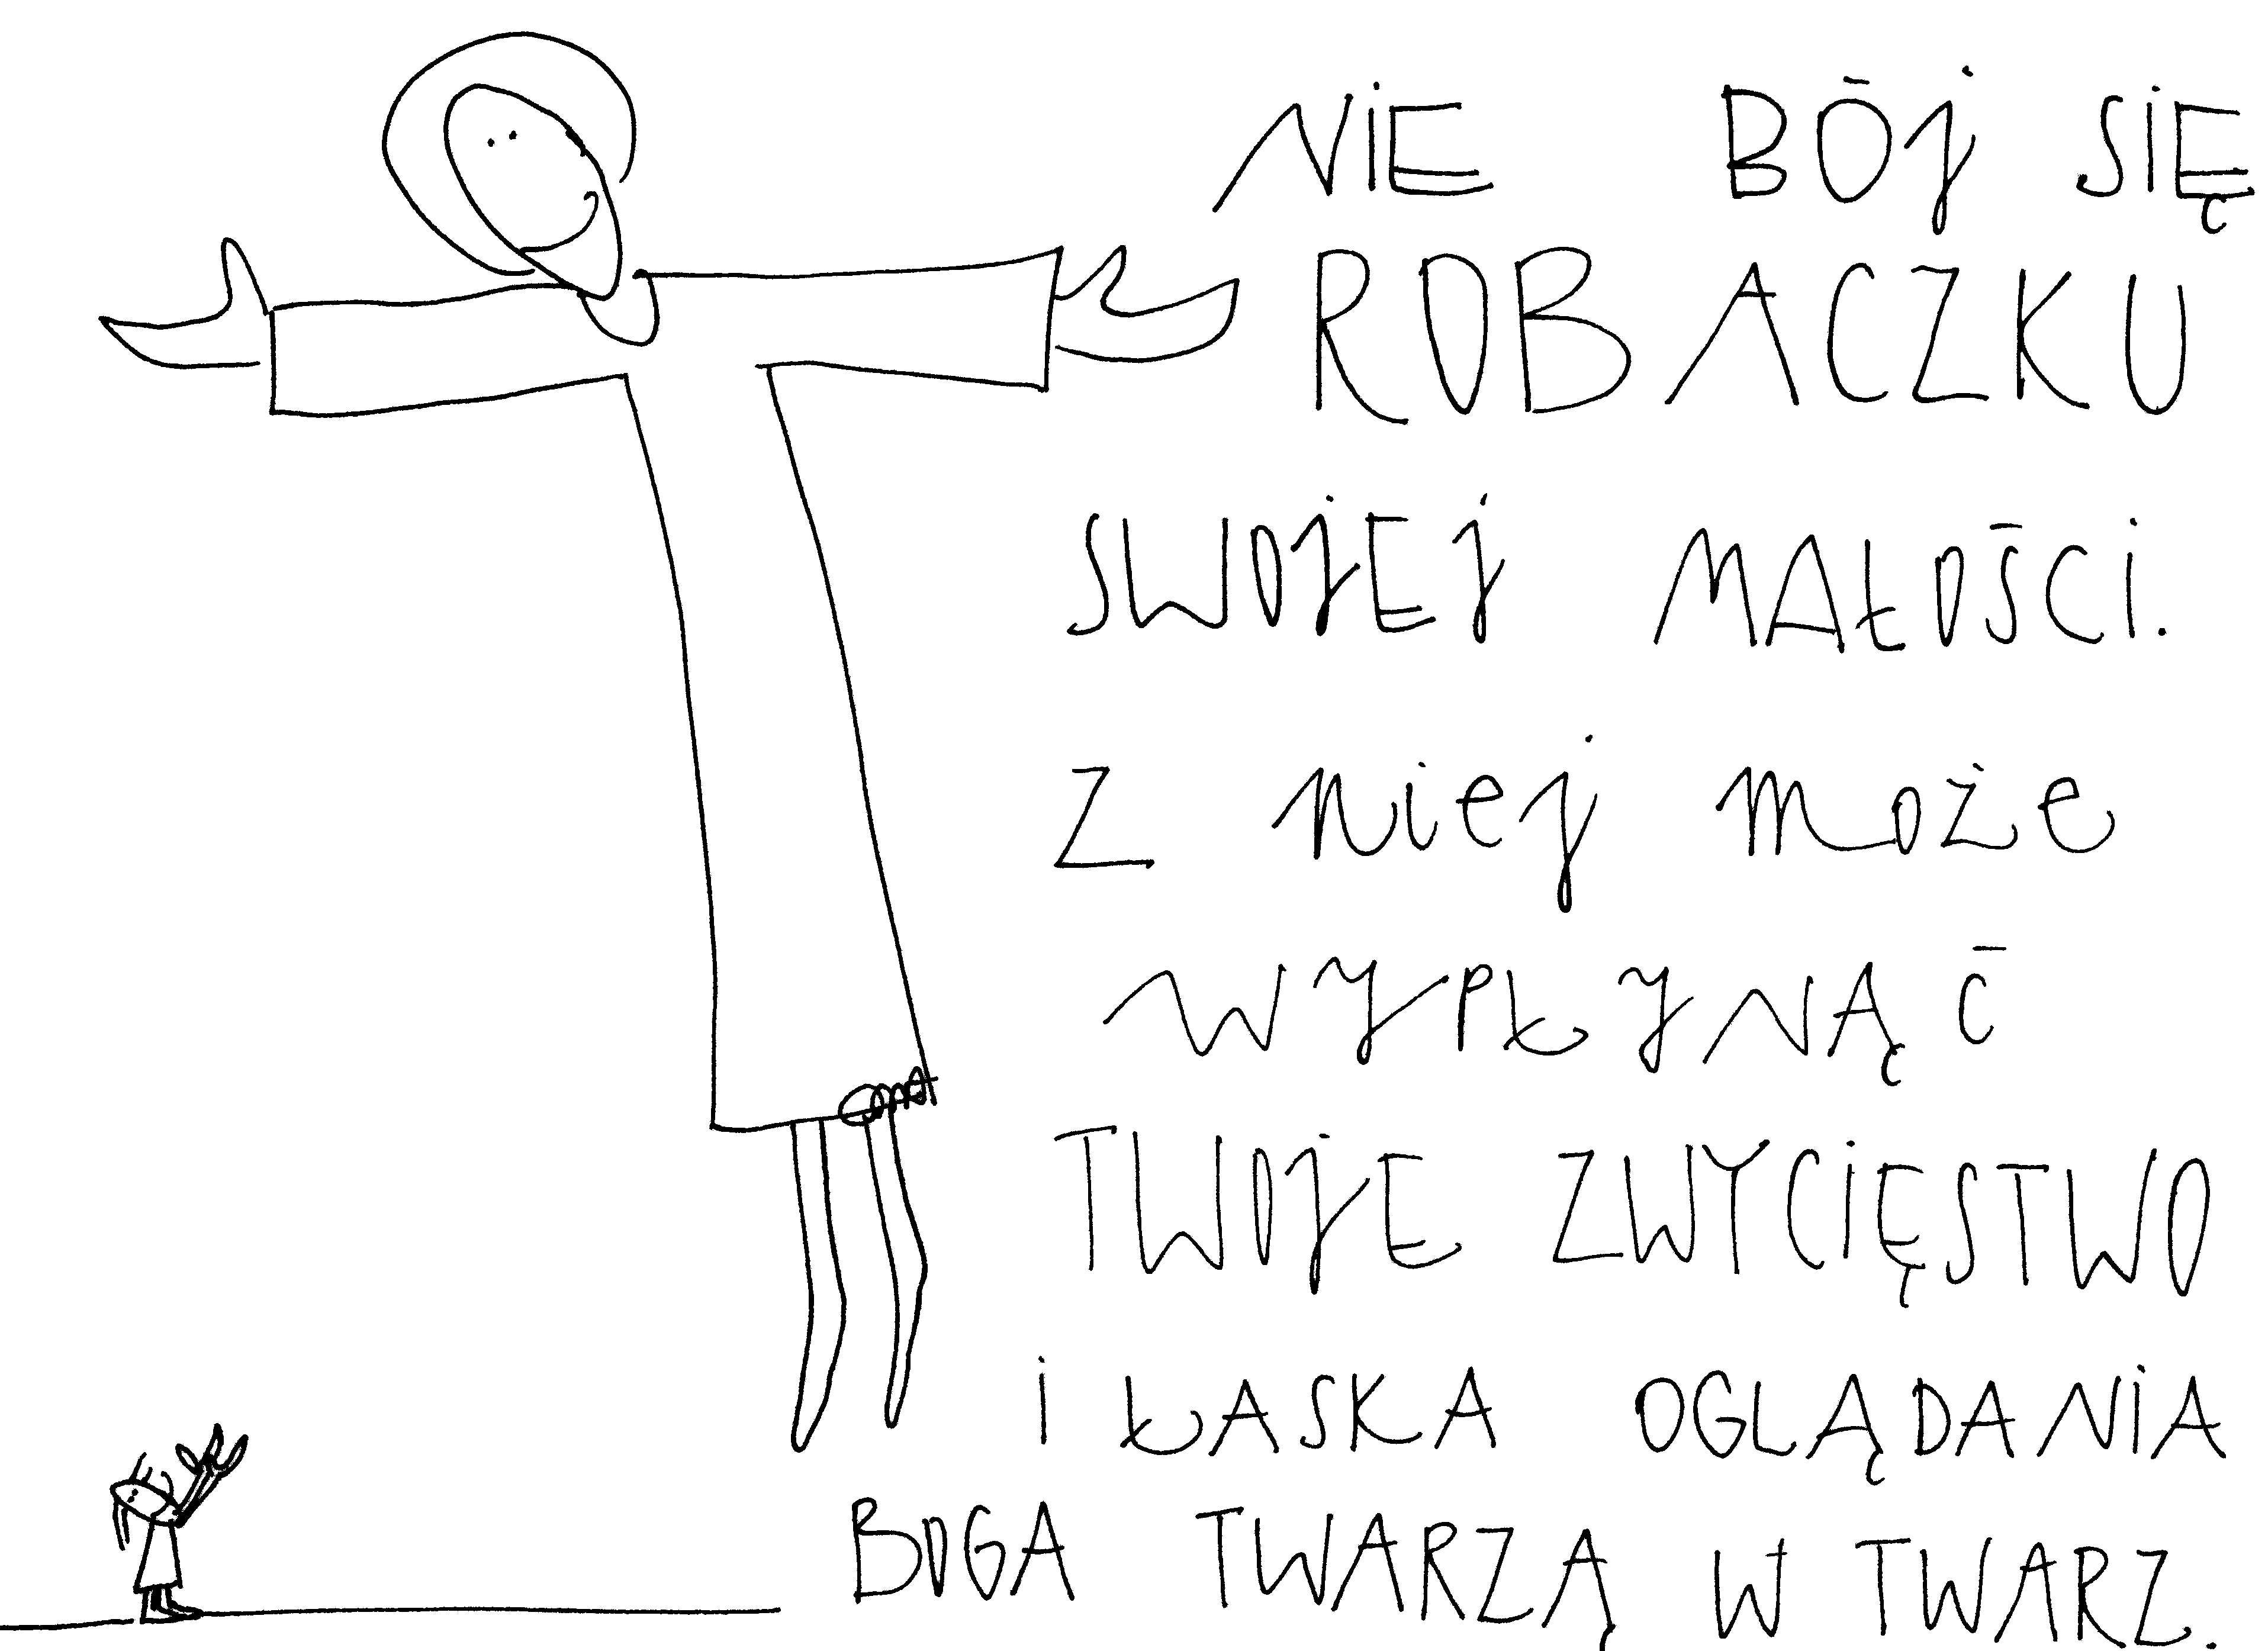 NIE BÓJ SIĘ
ROBACZKU
SWOJEJ MAŁOŚCI.
Z NIEJ MOŻE
WYPŁYNĄĆ
TWOJE ZWYCIĘSTWO
I ŁASKA OGLĄDANIA
BOGA TWARZĄ W TWARZ.